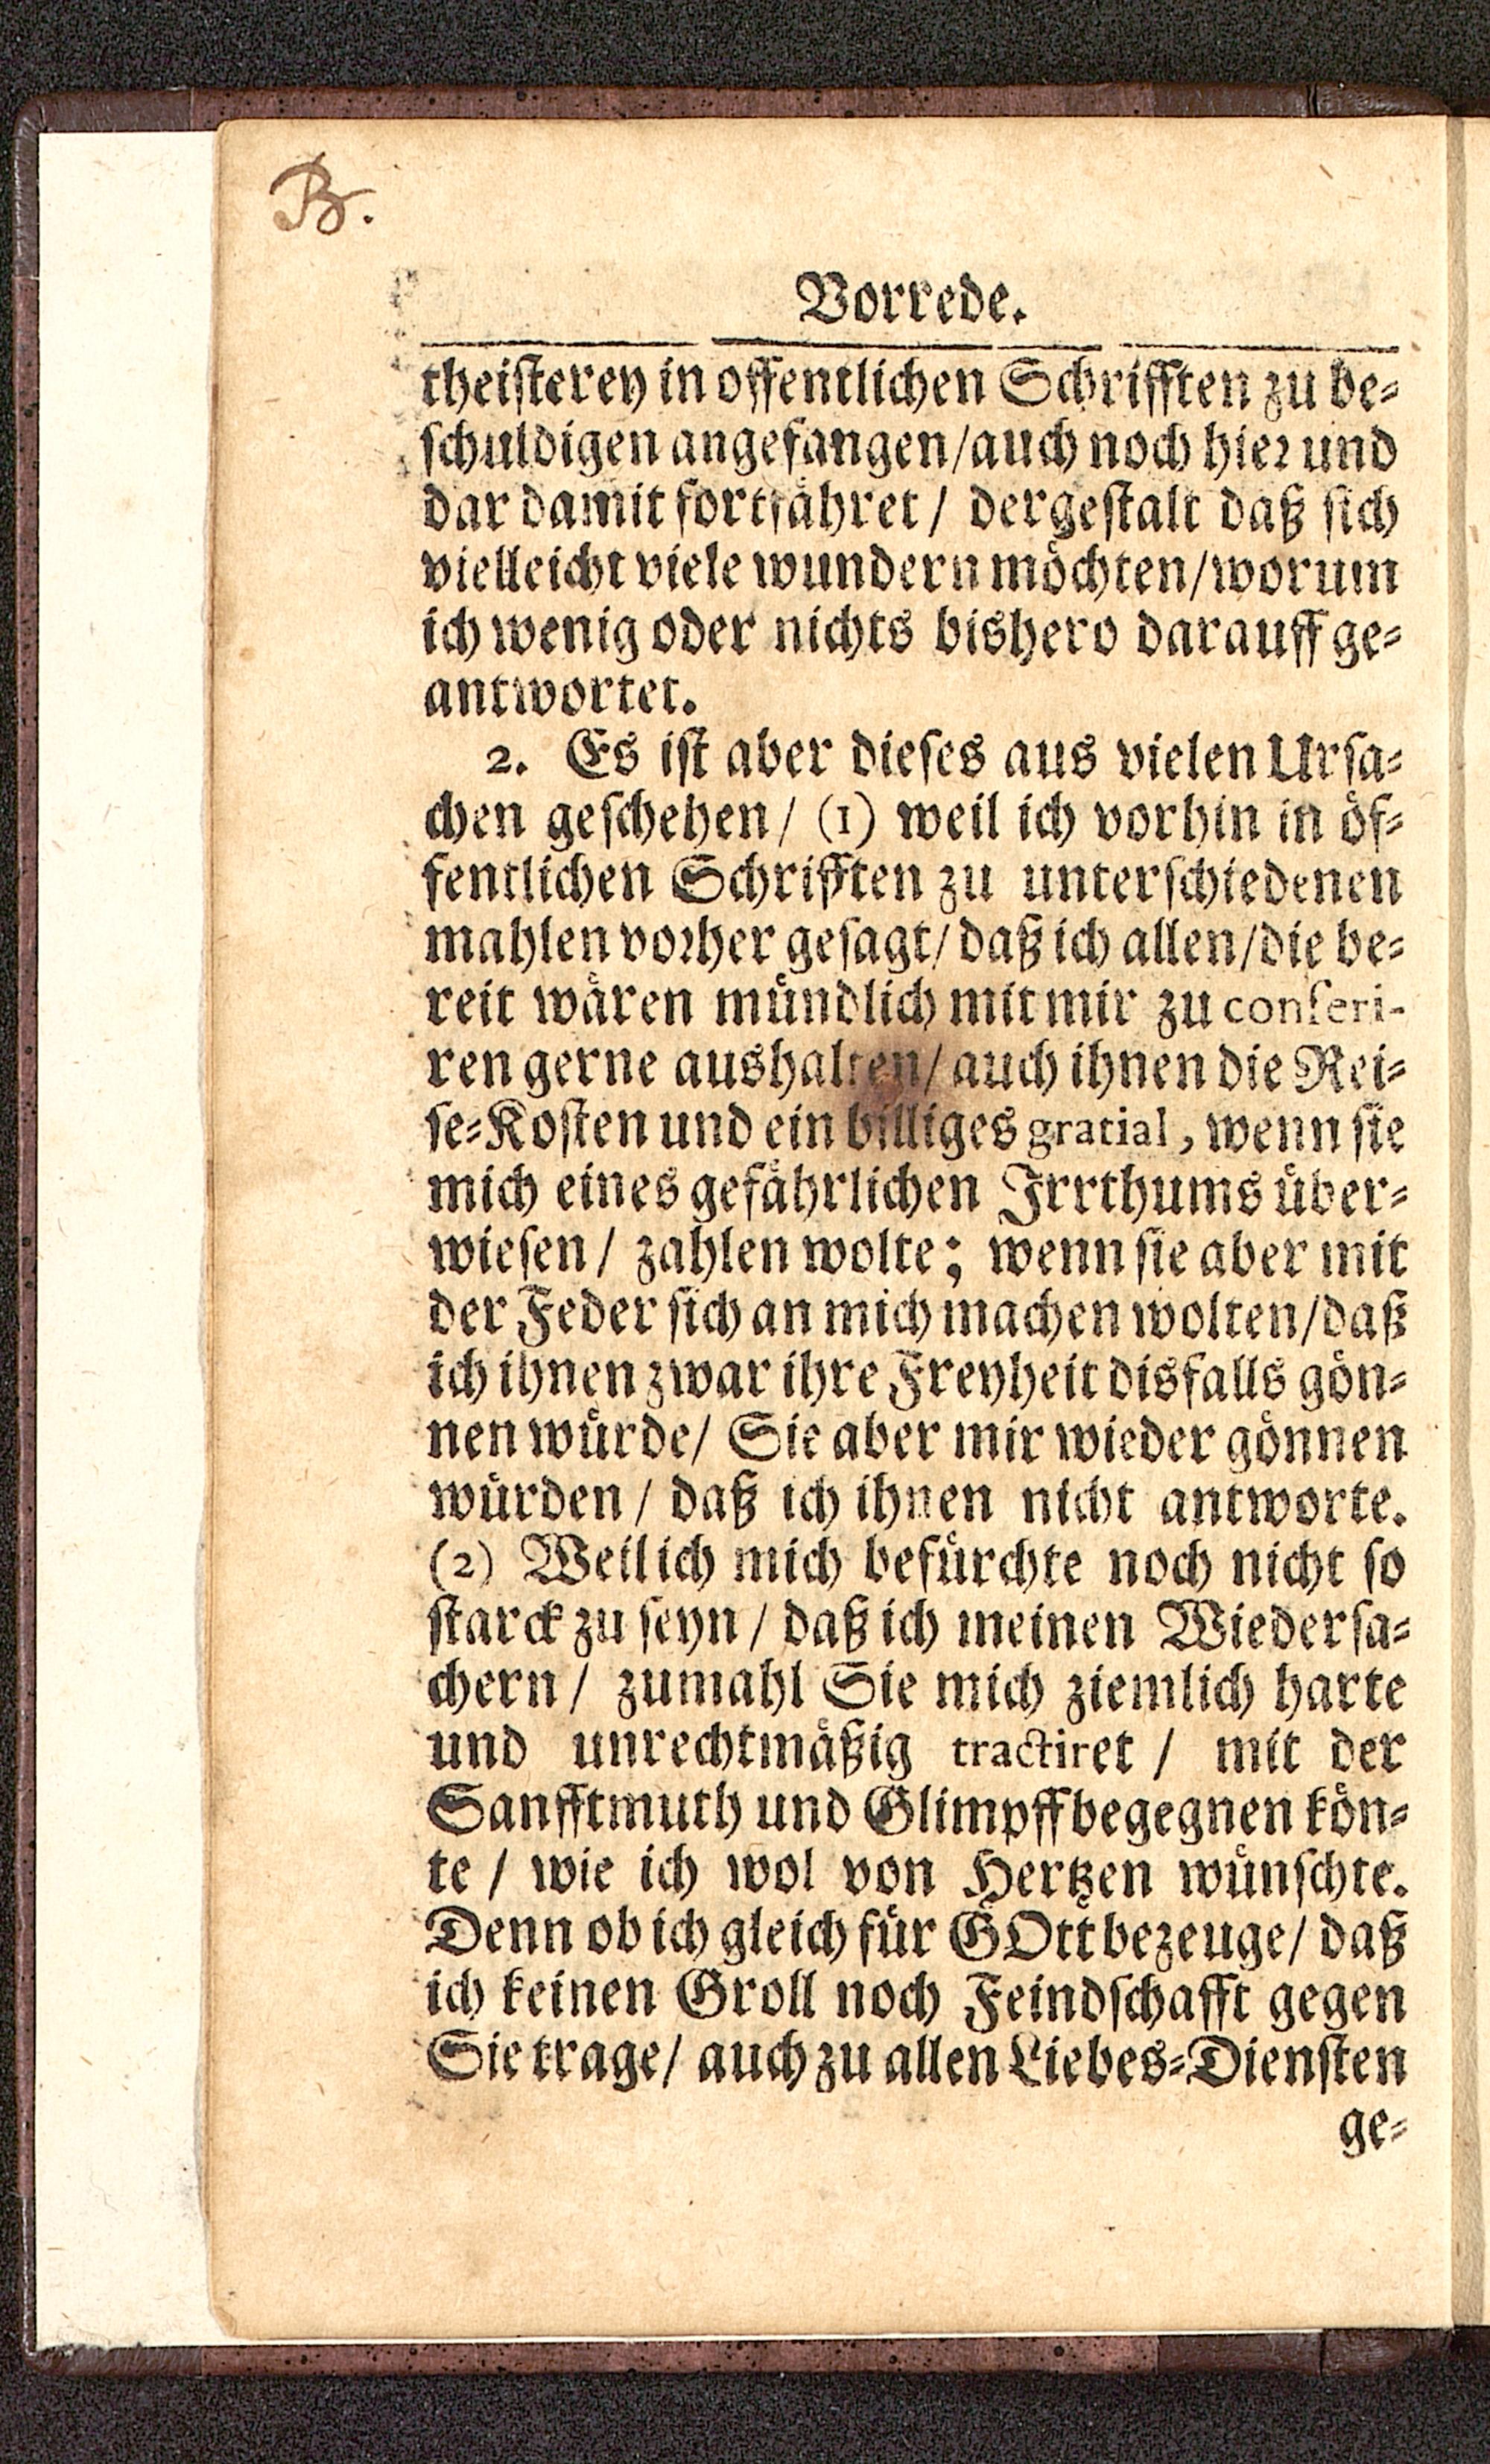 B.
Vorrede.
theiſterey in offentlichen Schrifften zu be⸗
ſchuldigen angefangen/auch noch hier und
dar damit fortfähret/ dergeſtalt daß ſich
vielleicht viele wundern möchten/worum
ich wenig oder nichts bishero darauff ge⸗
antwortet.
2. Es iſt aber dieſes aus vielen Urſa⸗
chen geſchehen/ (1) weil ich vorhin in öf⸗
fentlichen Schrifften zu unterſchiedenen
mahlen vorher geſagt/ daß ich allen/die be⸗
reit wären mündlich mit mir zu conferi-
ren gerne aushalten/ auch ihnen die Rei⸗
ſe⸗Koſten und ein billiges gratial, wenn ſie
mich eines gefährlichen Irrthums über⸗
wieſen/ zahlen wolte; wenn ſie aber mit
der Feder ſich an mich machen wolten/daß
ich ihnen zwar ihre Freyheit disfalls gön⸗
nen würde/ Sie aber mir wieder gönnen
würden/ daß ich ihnen nicht antworte.
(2) Weil ich mich befürchte noch nicht ſo
ſtarck zu ſeyn/ daß ich meinen Wiederſa⸗
chern/ zumahl Sie mich ziemlich harte
und unrechtmäßig tractiret/ mit der
Sanfftmuth und Glimpff begegnen kön⸗
te/ wie ich wol von Hertzen wünſchte.
Denn ob ich gleich für GOtt bezeuge/ daß
ich keinen Groll noch Feindſchafft gegen
Sie trage/ auch zu allen Liebes⸗Dienſten
ge⸗